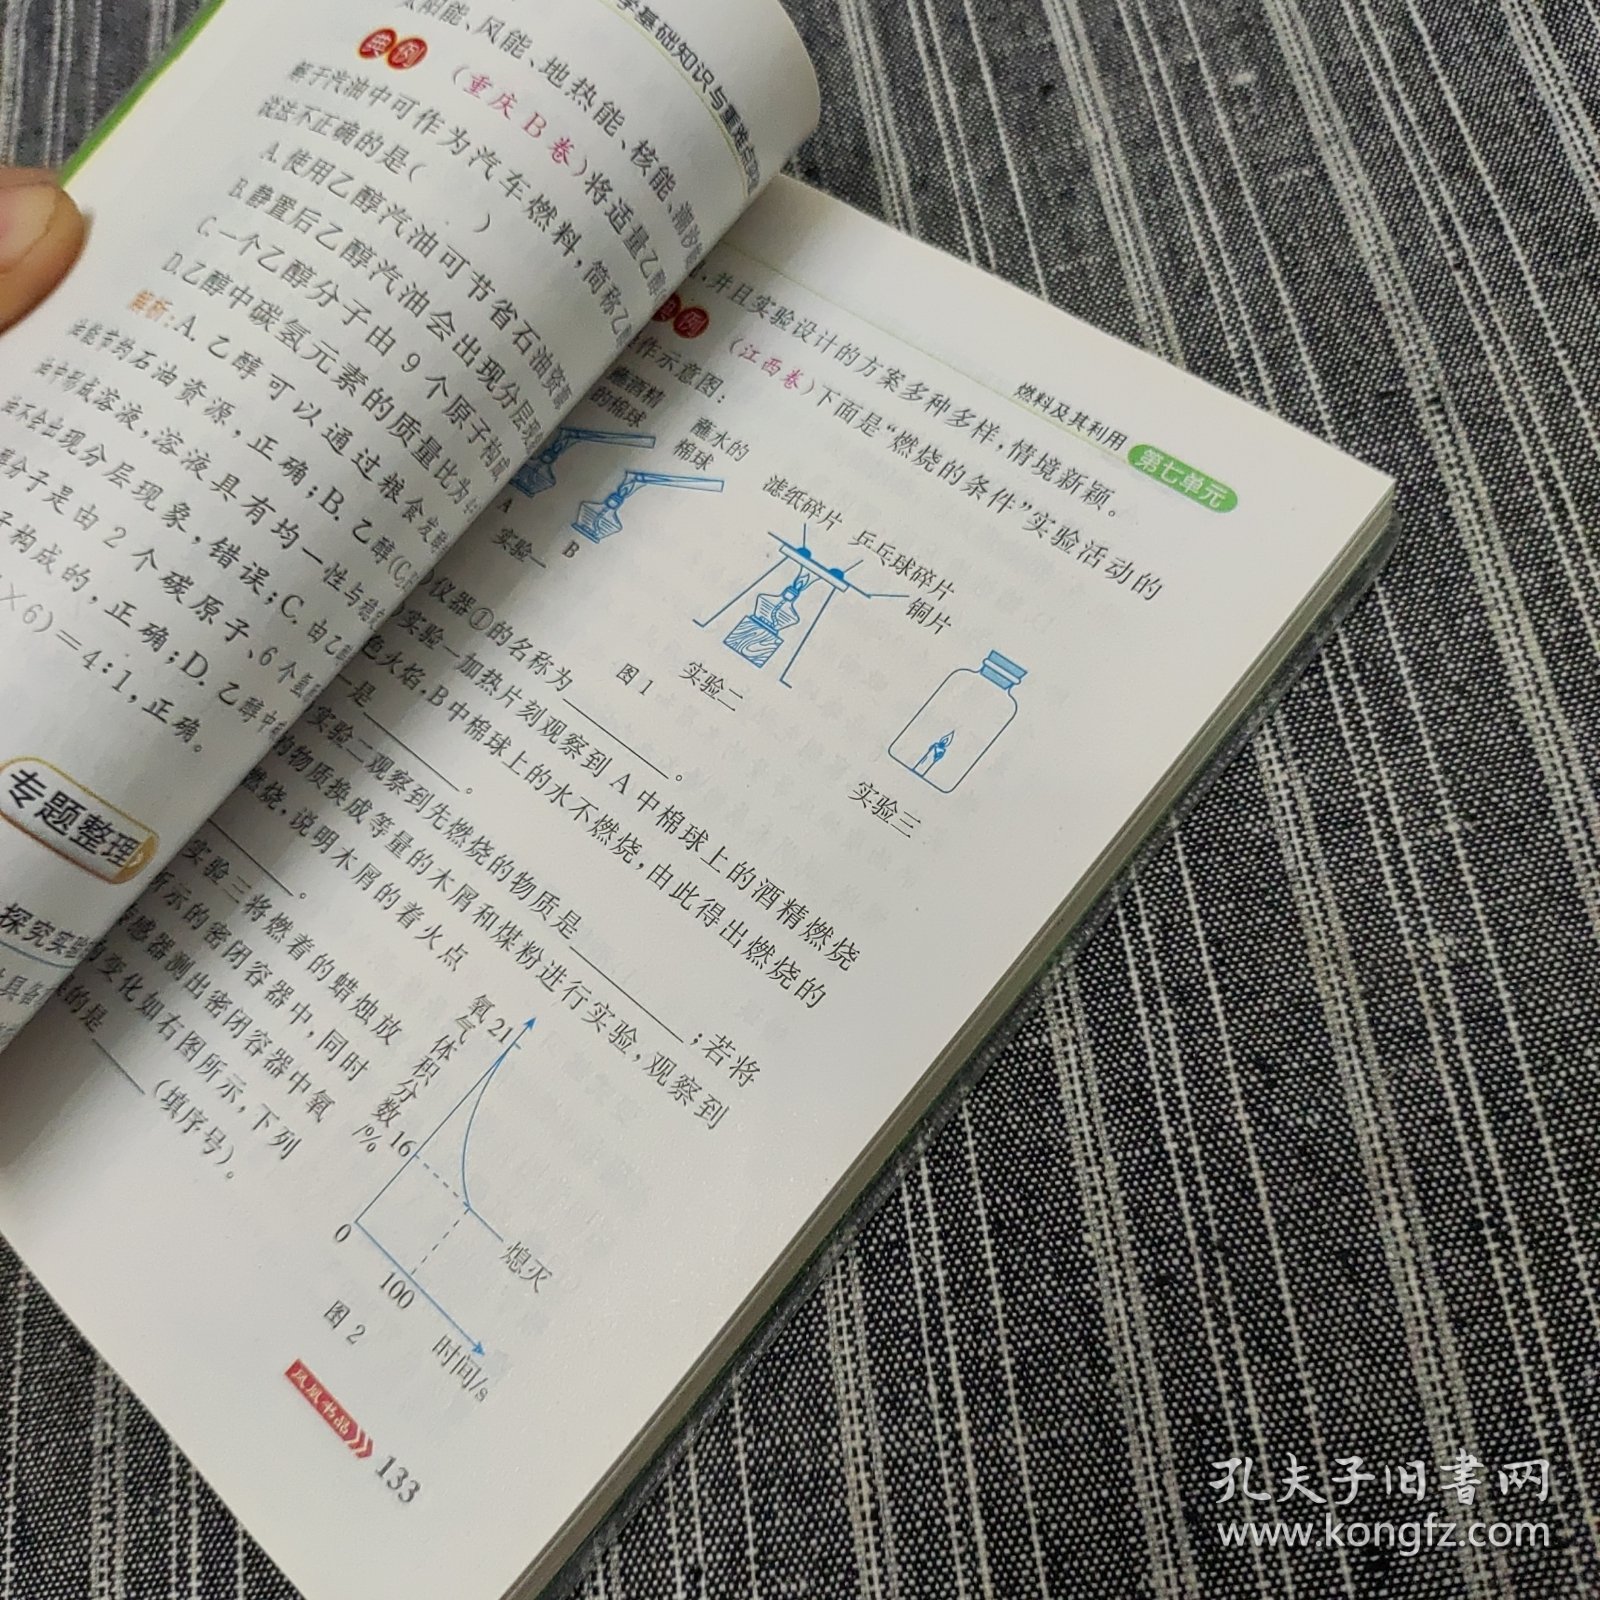 学基础知识与重难点
太阳能、风能、地热能、核能、潮汐
典例
(重庆B卷)将适量乙醇
解于汽油中可作为汽车燃料,简称乙
说法不正确的是( )
A.使用乙醇汽油可节省石油资源
B.静置后乙醇汽油会出现分层现
C.一个乙醇分子由9个原子构成
D.乙醇中碳氢元素的质量比为4
解析:A.乙醇可以通过粮食发
能节约石油资源,正确;B.乙醇(C
中形成溶液,溶液具有均一性与稳
会出现分层现象,错误;C.由乙
分子是由2个碳原子、6个氢
子构成的,正确;D.乙醇中
×6)=4:1,正确。
专题整理
探究实验
燃料及其利用
第七单元
,并且实验设计的方案多种多样,情境新颖。
典例
(江西卷)下面是“燃烧的条件”实验活动的
操作示意图:
蘸酒精
的棉球
蘸水的
棉球
A
B
实验一
滤纸碎片
乒乓球碎片
铜片
实验二
图1
实验三
仪器①的名称为
。
实验一加热片刻观察到A中棉球上的酒精燃烧
色火焰,B中棉球上的水不燃烧,由此得出燃烧的
是
。
实验二观察到先燃烧的物质是
;若将
的物质换成等量的木屑和煤粉进行实验,观察到
燃烧,说明木屑的着火点
。
实验三将燃着的蜡烛放
所示的密闭容器中,同时
传感器测出密闭容器中氧
的变化如右图所示,下列
的是
(填序号)。
氧气体积分数/%
21
16
0
100
熄灭
时间/s
图2
凤凰书品
133
孔夫子旧书网
www.kongfz.com